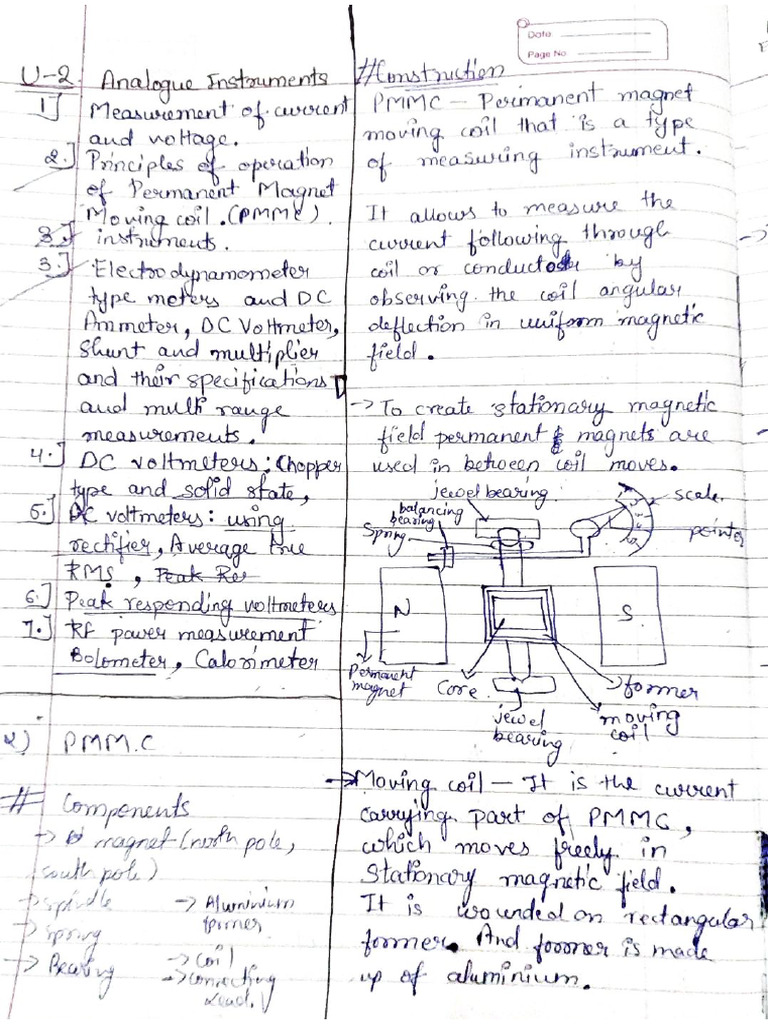 Date
Page No.
U-2 Analogue Instruments
1] Measurement of current
and voltage.
2.] Principles of operation
of Permanent Magnet
Moving coil. (PMMC).
3.] instruments.
3.] Electrodynamometer
type meters and DC
Ammeter, DC Voltmeter,
Shunt and multiplier
and their specifications
and multi range
measurements.
4.] DC voltmeters: Chopper
type and solid state,
5.] DC voltmeters: using
rectifier, Average true
RMS, Peak Res
6.] Peak responding voltmeters
7.] RF power measurement
Bolometer, Calorimeter
2) PMM.C
# Components
→ magnet (north pole,
south pole)
→ Spindle → Aluminium
former
→ Spring
→ Bearing → Coil
→ Connecting
Lead.
# Construction
PMMC - Permanent magnet
moving coil that is a type
of measuring instrument.
It allows to measure the
current following through
coil or conductor by
observing the coil angular
deflection in uniform magnetic
field.
→ To create stationary magnetic
field permanent magnets are
used in between coil moves.
jewel bearing
balancing
bearing
Spring
scale.
pointer
N
S
Permanent
magnet
Core
jewel
bearing
former
moving
coil
→ Moving coil - It is the current
carrying part of PMMC,
which moves freely in
Stationary magnetic field.
It is wounded on rectangular
former. And former is made
up of aluminium.